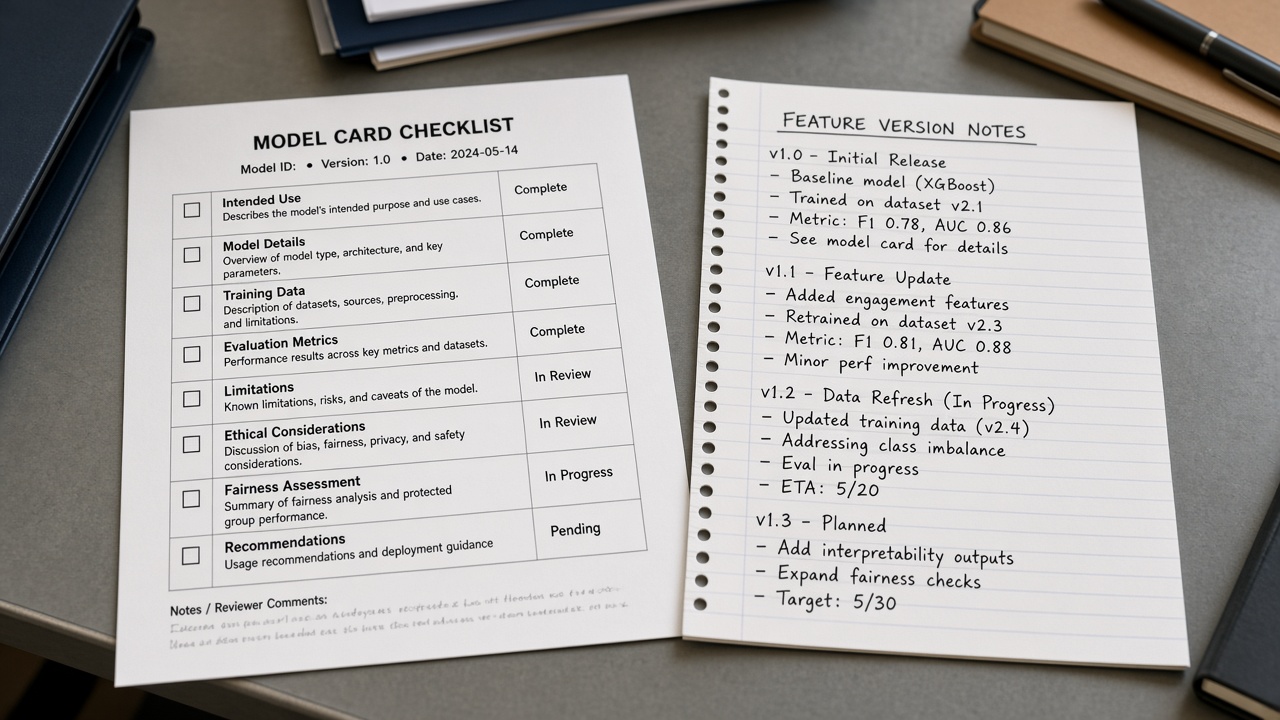 MODEL CARD CHECKLIST
Model ID: • Version: 1.0 • Date: 2024-05-14
Intended Use
Describes the model's intended purpose and use cases.
Complete
Model Details
Overview of model type, architecture, and key
parameters.
Complete
Training Data
Description of datasets, sources, preprocessing,
and limitations.
Complete
Evaluation Metrics
Performance results across key metrics and datasets.
Complete
Limitations
Known limitations, risks, and caveats of the model.
In Review
Ethical Considerations
Discussion of bias, fairness, privacy, and safety
considerations.
In Review
Fairness Assessment
Summary of fairness analysis and protected
group performance.
In Progress
Recommendations
Usage recommendations and deployment guidance
Pending
Notes / Reviewer Comments:
FEATURE VERSION NOTES
v1.0 – Initial Release
– Baseline model (XGBoost)
– Trained on dataset v2.1
– Metric: F1 0.78, AUC 0.86
– See model card for details
v1.1 – Feature Update
– Added engagement features
– Retrained on dataset v2.3
– Metric: F1 0.81, AUC 0.88
– Minor perf improvement
v1.2 – Data Refresh (In Progress)
– Updated training data (v2.4)
– Addressing class imbalance
– Eval in progress
– ETA: 5/20
v1.3 – Planned
– Add interpretability outputs
– Expand fairness checks
– Target: 5/30